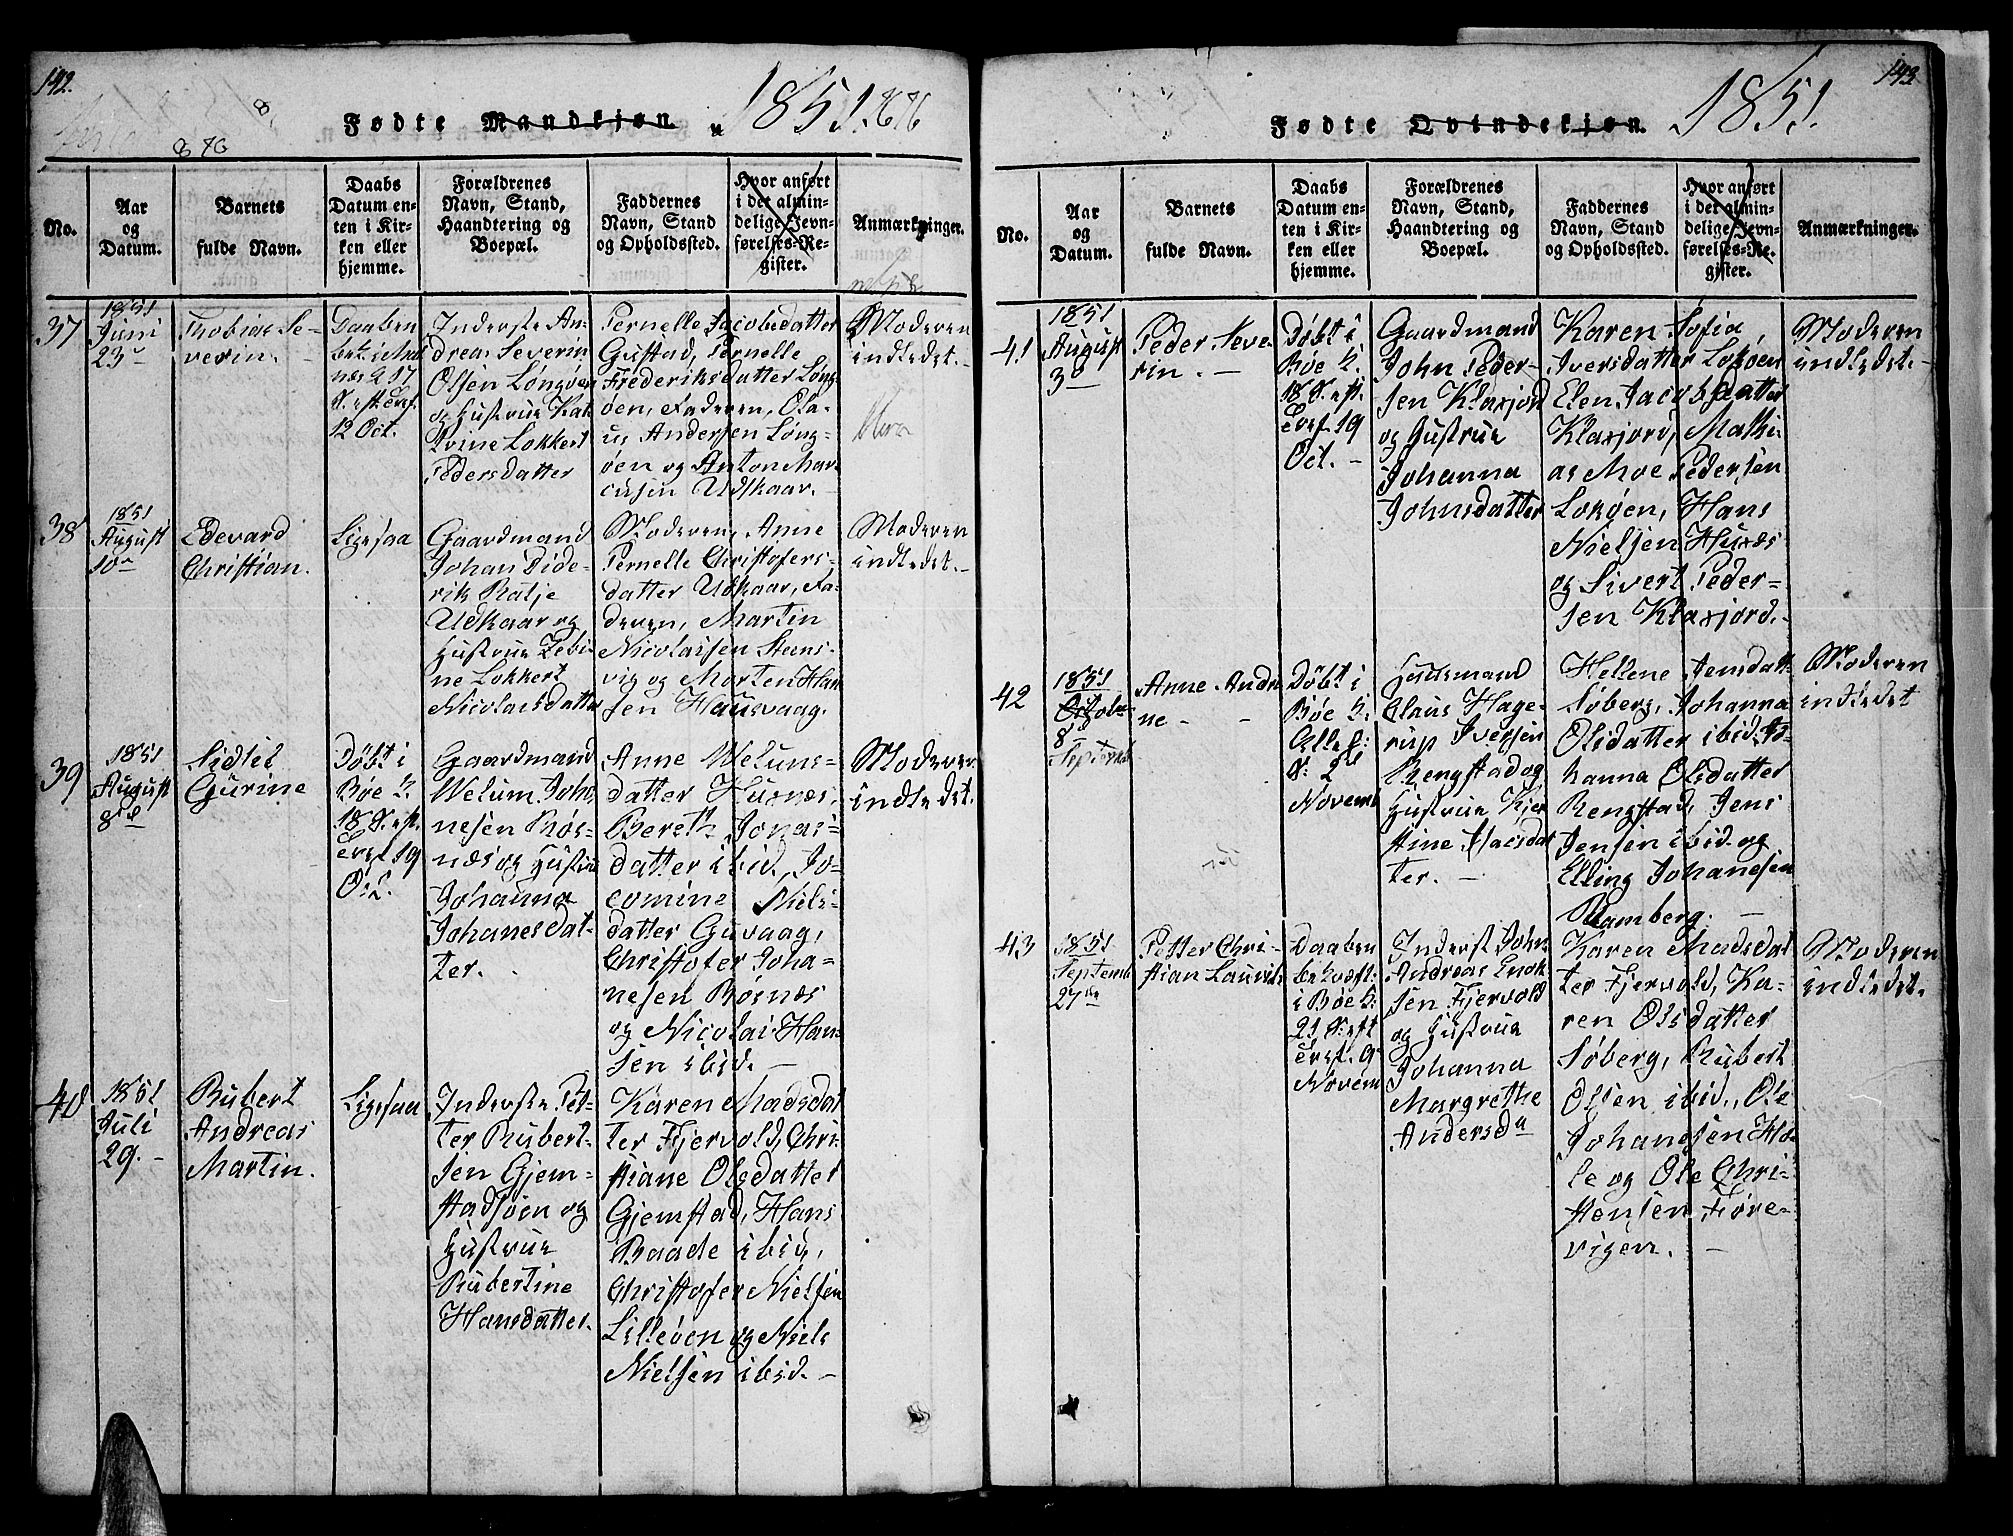 142.
Fødte Mandkjøn 1851.
No.
Aar
og
Datum.
Barnets
fulde Navn.
Daabs
Datum en-
ten i Kir-
ken eller
hjemme.
Forældrenes
Navn, Stand,
Haandtering og
Boepæl.
Faddernes
Navn, Stand
og Opholdssted.
Hvor anført
i det almin-
delige Jevn-
førelses-Re-
gister.
Anmærkninger.
37
1851
Juni
23
Thobias Se-
verin.
Daaben
12 Oct.
Inderste An-
dreas Severin
Olsen Longøen
og Hustrue Kat
rine Lokkert
Pedersdatter
Pernelle Jacobsdatter
Gustad, Pernelle
Frederiksdatter Long-
øen, Faderen, Ola-
us Andersen Long-
øen og Anton Mar-
cusen Udskaar.
Moderen
indledet.
38
1851
August
10
Edevard
Christian.
Ligesaa
Gaardmand
Johan Dide-
rik Ratje
Udkaar og
Hustrue Zebi-
ne Lokkert
Nicolaisdatter
Moderen, Anne
Pernelle Christofers-
datter Udkaar, Fa-
deren, Martin
Nicolaisen Steins-
vig og Morten Han
sen Hausvaag.
Moderen
indledet.
39
1851
August
8de
Sidlet
Gurine
Døbt i
Bøe K.
18 S. eft.
Evgl. 19
Oct.
Gaardmand
Welum Joha
nesen Røs-
næs og Hustrue
Johanna
Johanesdat-
ter.
Anne Weluns-
datter Husnæs,
Bereth Jonas-
datter ibid, Ja-
comine Niels-
datter Guvaag,
Christofer Joha-
nesen Børnæs
og Nicolai Han-
sen ibid.
Moderen
indledet.
40
1851
Juli
29.
Rubert
Andreas
Martin.
Ligesaa
Inderste Pet-
ter Rubert-
sen Gjem-
stadsøen og
Hustrue
Rubertine
Hansdatter.
Karen Madsdat
ter Fjervold, Chri-
stiane Olsdatter
Gjemstad, Hans
Baade ibid,
Christofer Nielsen
Lilleøen og Niels
Nielsen ibid.
143.
Fødte Qvindekjøn. 1851.
No.
Aar
og
Datum.
Barnets
fulde Navn.
Daabs
Datum en-
ten i Kir-
ken eller
hjemme.
Forældrenes
Navn, Stand,
Haandtering og
Boepæl.
Faddernes
Navn, Stand
og Opholdssted.
Hvor anført
i det almin-
delige Jevn-
førelses-Re-
gister.
Anmærkninger.
41
1851
August
3
Peder Seve
rin.
Døbt i
Bøe K.
18 S. eft.
Evgl. 19
Oct.
Gaardmand
John Peder-
sen Klaxjord
og Hustrue
Johanna
Johnsdatter
Karen Sofia
Iversdatter Lokøen
Elen Jacobsdatter
Klaxjord, Mathi-
as Moe Pedersen
Lokøen, Hans
Nielsen Husnæs
og Sivert Peder-
sen Klaxjord.
Moderen
indledet.
42
1851
Octobr
8de
Septemb
Anne Andre
ne.
Døbt i
Bøe K.
Alleh:
S. 2den
Novemb
Huusmand
Claus Hage-
rup Iversen
Rengstad og
Hustrue Kjer
stine Hansdat
ter.
Hellene Jensdatt
Søberg, Johanna
Olsdatter ibid, Jo-
hanna Olsdatter
Rengstad, Jens
Jensen ibid og
Elling Johanesen
Ramberg.
Moderen
indledet
43
1851
Septemb
27de
Petter Chri-
stian Lauvits
Daaben
bekræft.
i Bøe K.
21 S. eft
Evgl. 9
Novem
Inderste John
Andreas Enok-
sen Fjervold
og Hustrue
Johanna
Margrethe
Andersda
Karen Madsdat
ter Fjervold, Ka-
ren Olsdatter
Søberg, Rubert
Olsen ibid, Ole
Johansen Ho-
le og Ole Chri-
stensen Føre-
vigen.
Moderen
indledet.